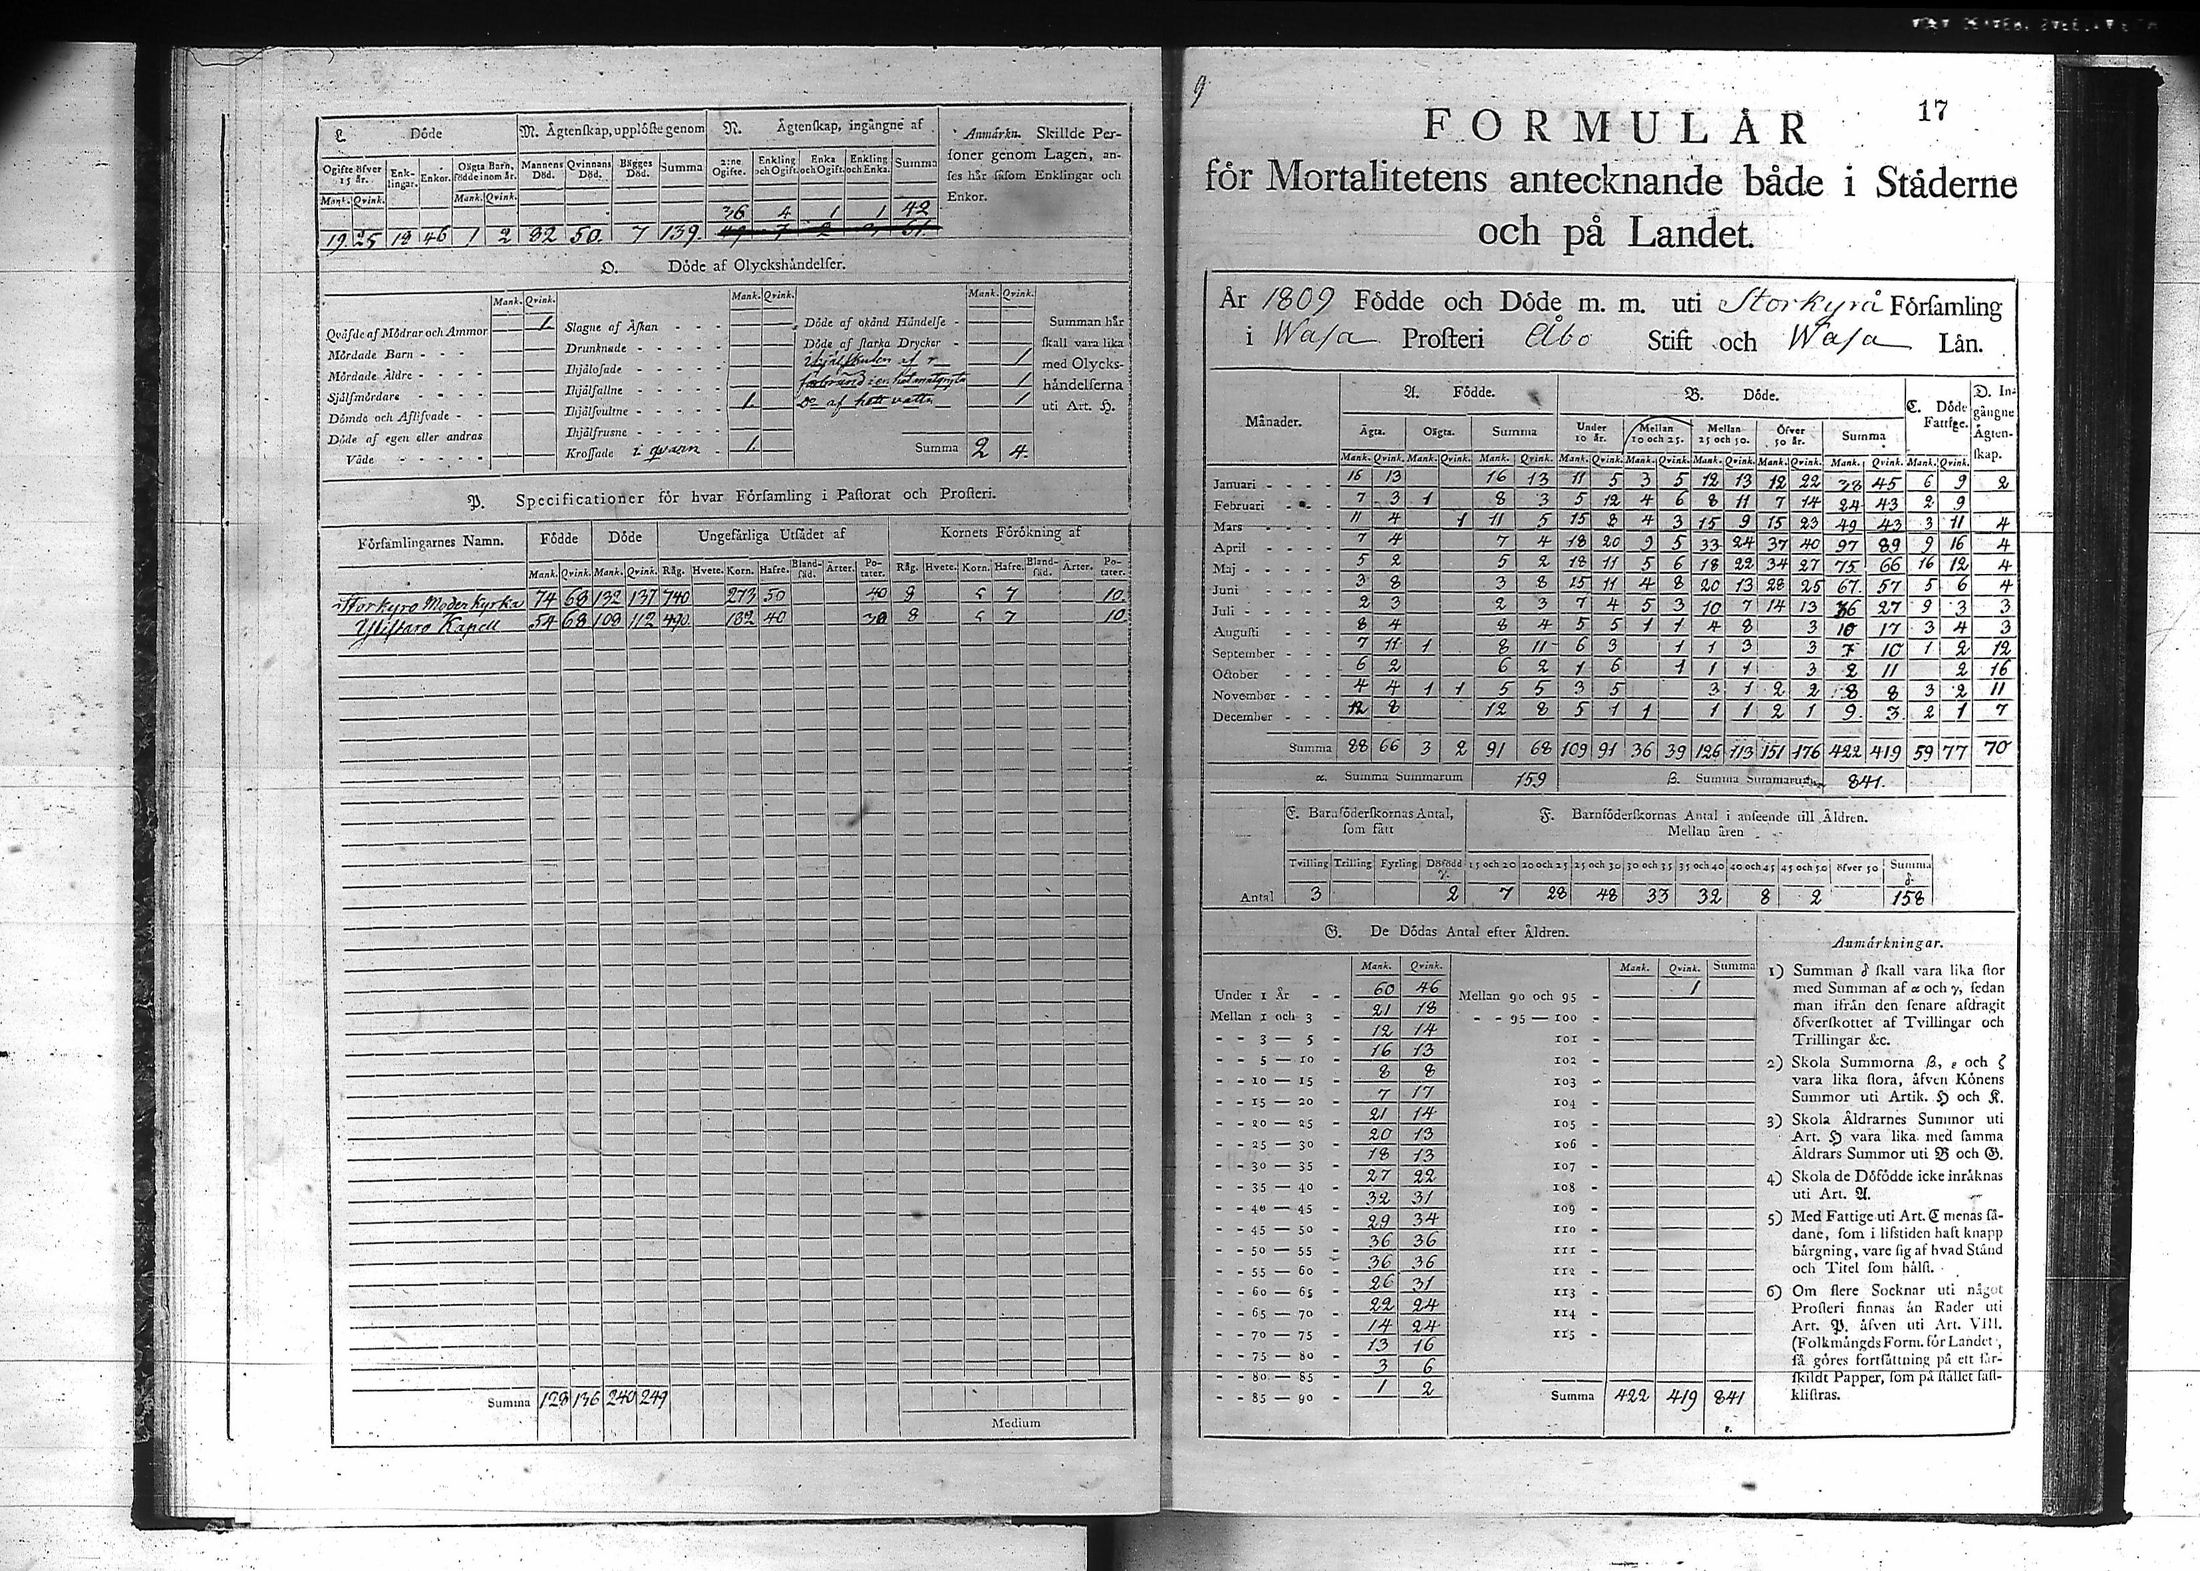 L. Döde
M. Ägtenskap, upplöste genom
N. Ägtenskap, ingångne af
Ogifte öfver 15 år. Enklingar. Enkor. Oägta Barn, födde inom år. Mannens Död. Qvinnans Död. Bägges Död. Summa 2:ne Ogifte. Enkling och Ogift. Enka och Ogift. Enkling och Enka. Summa
Mank. Qvink. Mank. Qvink.
36 4 1 1 42
19 25 19 46 1 2 82 50. 7 139.
Anmärkn. Skillde Per-
soner genom Lagen, an-
ses här såsom Enklingar och
Enkor.
O. Döde af Olyckshändelser.
Mank. Qvink. Mank. Qvink. Mank. Qvink.
Qväfde af Mödrar och Ammor 1
Mördade Barn
Mördade Äldre
Sjelfmördare
Dömde och Aflifvade
Döde af egen eller andras
Våde
Slagne af Åskan
Drunknade
Ihjälofade
Ihjälfallne 1.
Ihjälsvultne
Ihjälfrusne
Krossade i qvarn 1.
Döde af okänd Händelse
Döde af starka Drycker
1
1
Do af hett vatten 1
Summa 2 4.
Summan här
skall vara lika
med Olycks-
händelserna
uti Art. H.
P. Specificationer för hvar Församling i Pastorat och Prosteri.
Församlingarnes Namn. Födde Döde Ungefärliga Utsädet af Kornets Förökning af
Mank. Qvink. Mank. Qvink. Råg. Hvete. Korn. Hafre. Bland-säd. Ärter. Po-tater. Råg. Hvete. Korn. Hafre. Bland-säd. Ärter. Po-tater.
Storkyro Moder Kyrka 74 68 132 137 740 273 50 40 9 5 7 10
Ylistaro Kapell 54 68 109 112 490 182 40 30 8 5 7 10
Summa 128 136 240 249
Medium
9
17
FORMULÄR
för Mortalitetens antecknande både i Städerne
och på Landet.
År 1809 Födde och Döde m. m. uti Storkyrå Församling
i Wasa Prosteri Åbo Stift och Wasa Län.
Månader. A. Födde. B. Döde. C. Döde Fattige. D. Ingångne Ägtenskap.
Ägta. Oägta. Summa Under 10 år. Mellan 10 och 25. Mellan 25 och 50. Öfver 50 år. Summa
Mank. Qvink. Mank. Qvink. Mank. Qvink. Mank. Qvink. Mank. Qvink. Mank. Qvink. Mank. Qvink. Mank. Qvink. Mank. Qvink.
Januari 16 13 16 13 11 5 3 5 12 13 12 22 38 45 6 9 2
Februari 7 3 1 8 3 5 12 4 6 8 11 7 14 24 43 2 9
Mars 11 4 1 11 5 15 8 4 3 15 9 15 23 49 43 3 11 4
April 7 4 7 4 18 20 9 5 33 24 37 40 97 89 9 16 4
Maj 5 2 5 2 18 11 5 6 18 22 34 27 75 66 16 12 4
Juni 3 8 3 8 15 11 4 8 20 13 28 25 67 57 5 6 4
Juli 2 3 2 3 7 4 5 3 10 7 14 13 36 27 9 3 3
Augusti 8 4 8 4 5 5 1 1 4 8 3 10 17 3 4 3
September 7 11 1 8 11 6 3 1 1 3 3 7 10 1 2 12
October 6 2 6 2 1 6 1 1 1 3 2 11 2 16
November 4 4 1 1 5 5 3 5 3 1 2 2 8 8 3 2 11
December 12 8 12 8 5 1 1 1 1 2 1 9 3 2 1 7
Summa 88 66 3 2 91 68 109 91 36 39 126 113 151 176 422 419 59 77 70
α. Summa Summarum 159 β. Summa Summarum 841.
E. Barnföderskornas Antal, som fått
F. Barnföderskornas Antal i anseende till Åldren.
Mellan åren
Tvilling Trilling Fyrling Döfödd γ. 15 och 20 20 och 25 25 och 30 30 och 35 35 och 40 40 och 45 45 och 50 öfver 50 Summa δ.
Antal 3 2 7 28 48 33 32 8 2 158
G. De Dödas Antal efter Åldren.
Mank. Qvink. Mank. Qvink. Summa
Under 1 År 60 46
Mellan 1 och 3 21 18
3 — 5 12 14
5 — 10 16 13
10 — 15 8 8
15 — 20 7 17
20 — 25 21 14
25 — 30 20 13
30 — 35 18 13
35 — 40 27 22
40 — 45 32 31
45 — 50 29 34
50 — 55 36 36
55 — 60 36 36
60 — 65 26 31
65 — 70 22 24
70 — 75 14 24
75 — 80 13 16
80 — 85 3 6
85 — 90 1 2
Mellan 90 och 95 1
95 — 100
101
102
103
104
105
106
107
108
109
110
111
112
113
114
115
Summa 422 419 841
ε.
Anmärkningar.
1) Summan δ skall vara lika stor
med Summan af α och γ, sedan
man ifrån den senare afdragit
öfverskottet af Tvillingar och
Trillingar &c.
2) Skola Summorna β, ε och ζ
vara lika stora, äfven Könens
Summor uti Artik. H och K.
3) Skola Åldrarnes Summor uti
Art. H vara lika med samma
Åldrars Summor uti B och G.
4) Skola de Döfödde icke inräknas
uti Art. A.
5) Med Fattige uti Art. C menas så-
dane, som i lifstiden haft knapp
bärgning, vare sig af hvad Stånd
och Titel som hälst.
6) Om flere Socknar uti något
Prosteri finnas än Rader uti
Art. P. äfven uti Art. VIII.
(Folkmängds Form. för Landet,
så göres fortsättning på ett sär-
skildt Papper, som på stället fast-
klistras.